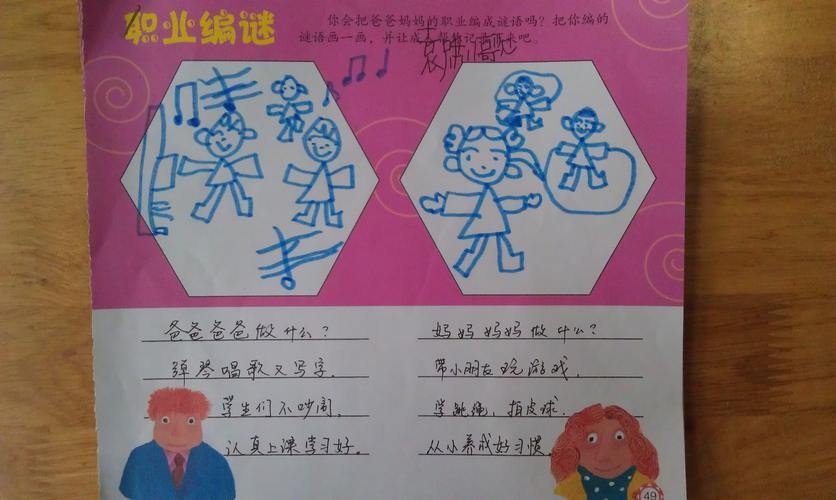 职业编谜
你会把爸爸妈妈的职业编成谜语吗？把你编的
谜语画一画，并让成
记下来吧。
爸爸爸爸做什么？
弹琴唱歌又写字.
学生们不吵闹。
认真上课学习好。
妈妈妈妈做什么？
带小朋友玩游戏.
学跳绳，拍皮球.
从小养成好习惯。
49